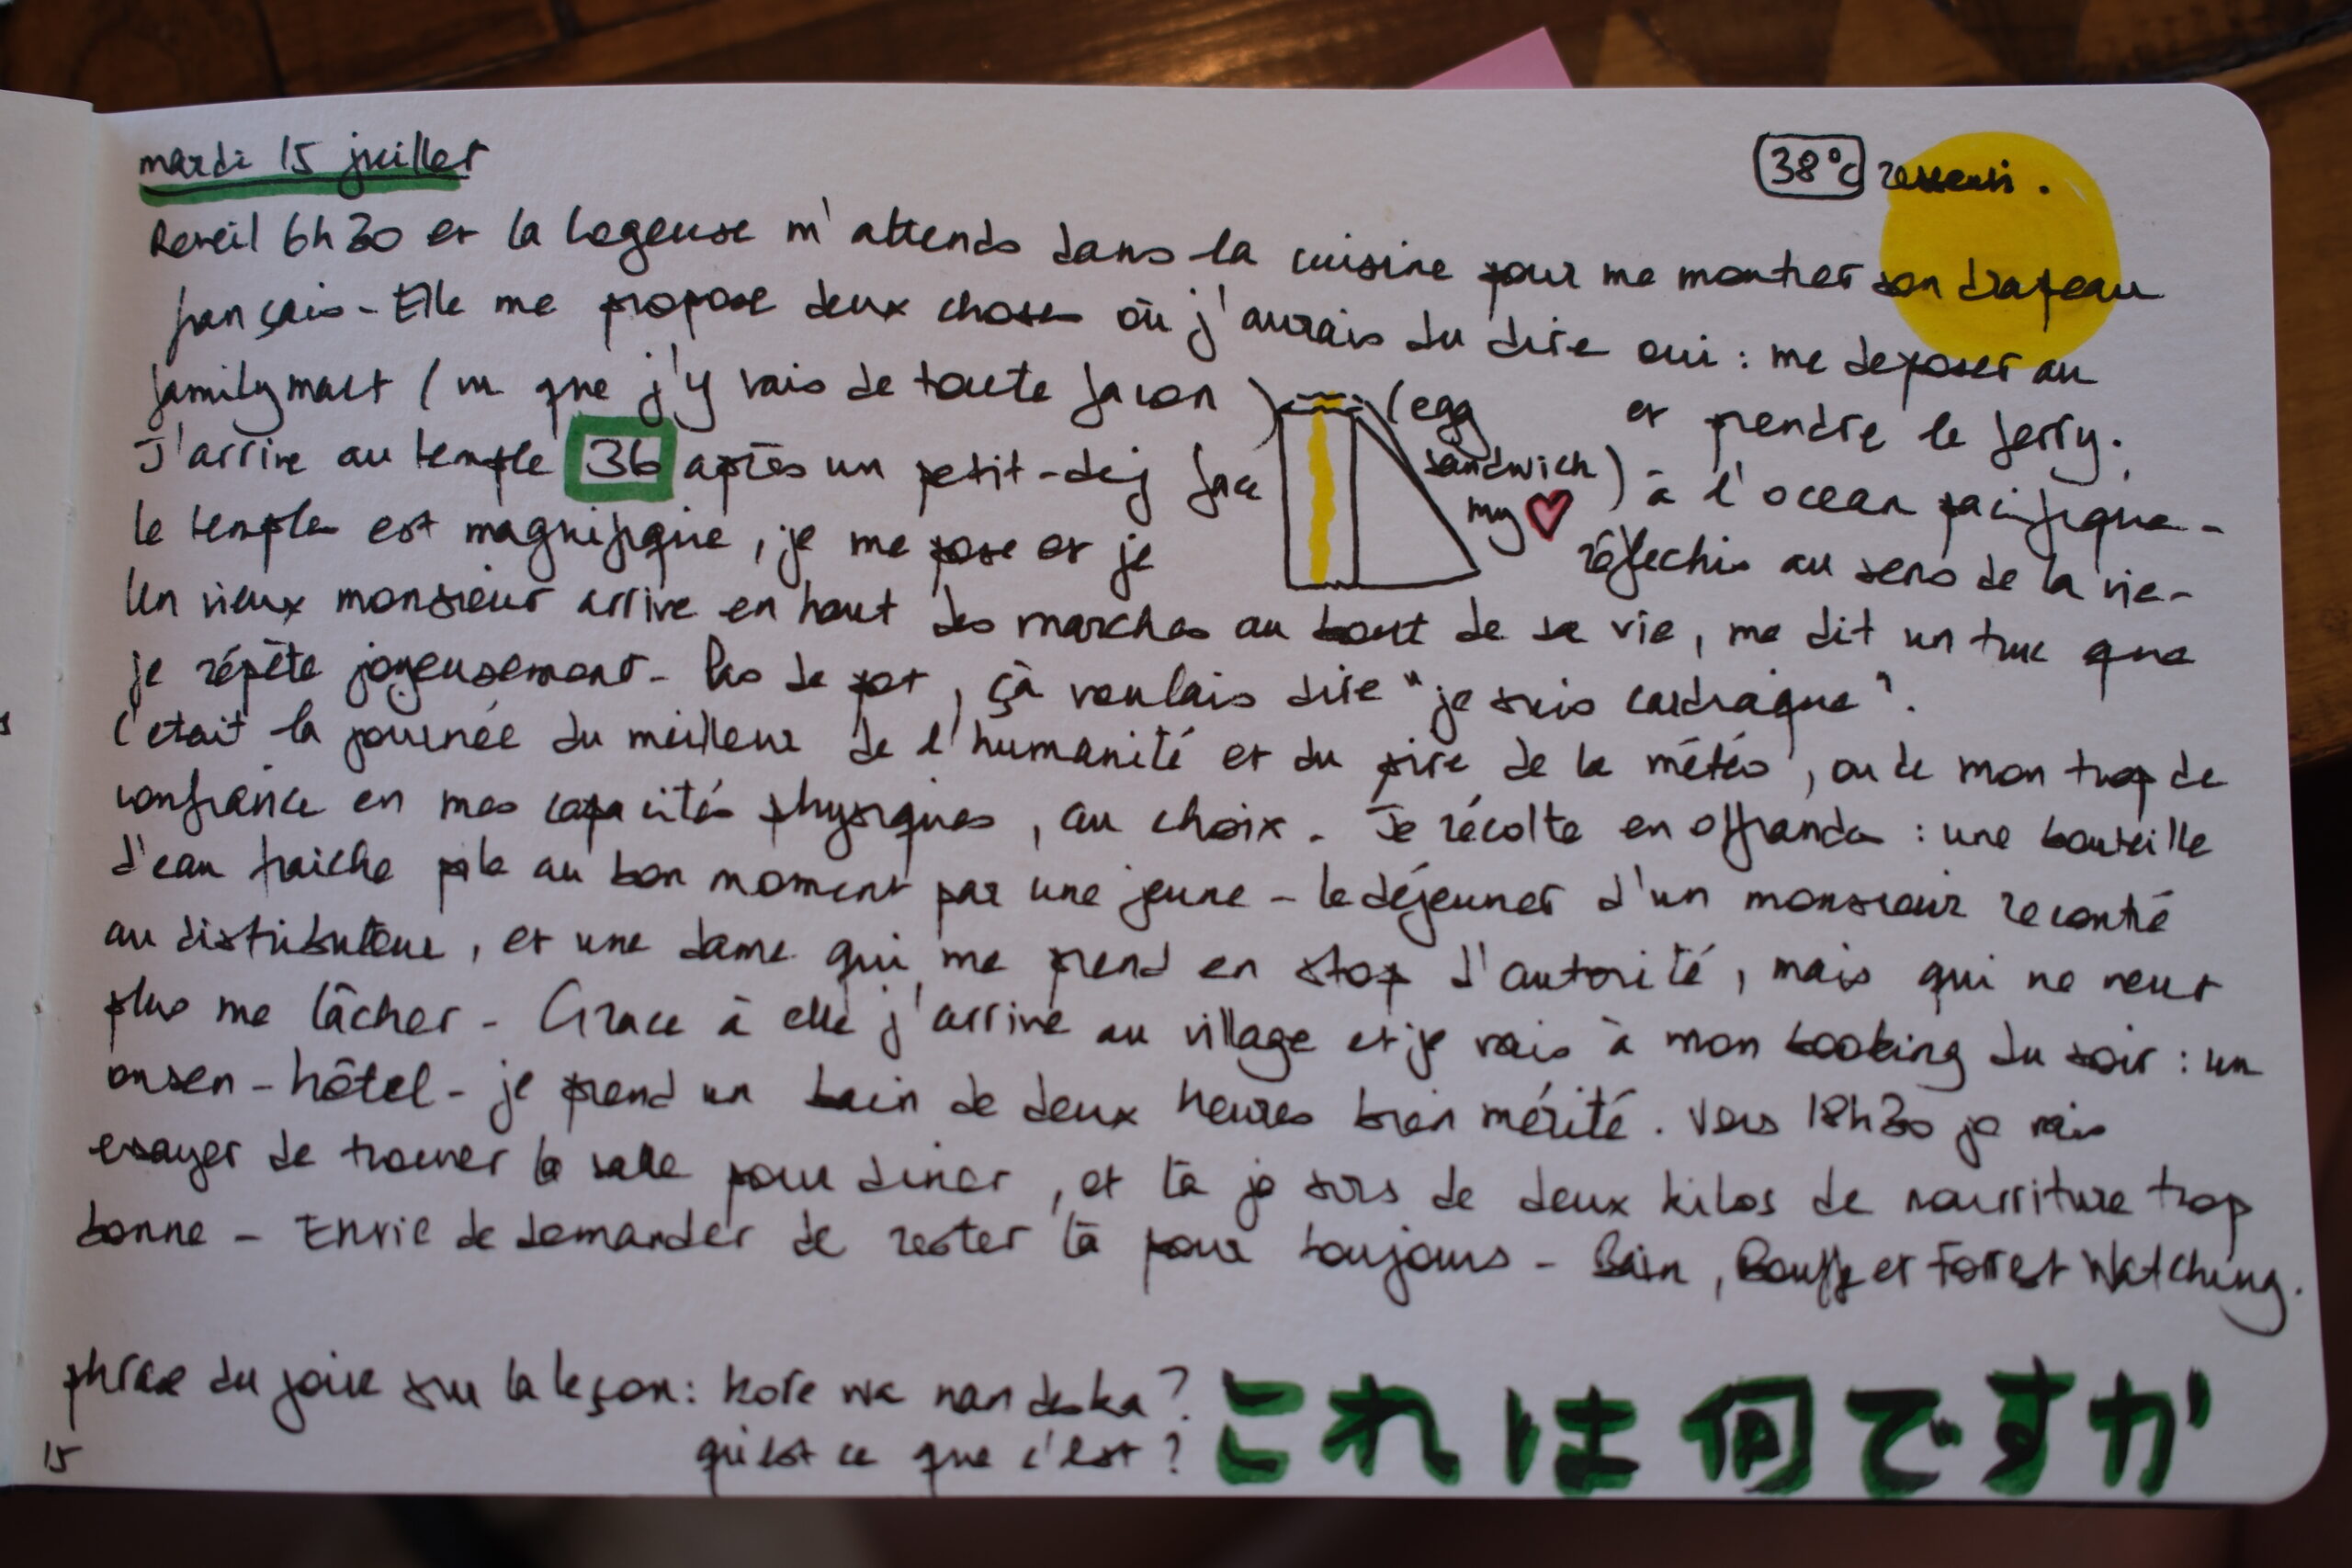 mardi 15 juillet
38°C ressenti.
Reveil 6h30 et la logeuse m'attends dans la cuisine pour me montrer son drapeau
français - Elle me propose deux choses où j'aurais du dire oui : me deposer au
familymart (vu que j'y vais de toute facon) et prendre le ferry.
(egg
sandwich
my ♥)
J'arrive au temple 36 après un petit-dej face à l'ocean pacifique -
le temple est magnifique, je me pose et je réflechis au sens de la vie -
Un vieux monsieur arrive en haut des marches au bout de sa vie, me dit un truc que
je répète joyeusement - Pas de pot, çà voulais dire "je suis cardiaque".
C'etait la journée du meilleur de l'humanité et du pire de la météo, ou de mon trop de
confiance en mes capacités physiques, au choix. Je récolte en offrandes : une bouteille
d'eau fraiche pile au bon moment par une jeune - le déjeuner d'un monsieur recontré
au distributeur, et une dame qui me prend en stop d'autorité, mais qui ne veut
plus me lâcher - Grace à elle j'arrive au village et je vais à mon booking du soir : un
onsen - hôtel - je prend un bain de deux heures bien mérité. Vers 18h30 je vais
essayer de trouver la salle pour diner, et là je sors de deux kilos de nourriture trop
bonne - Envie de demander de rester là pour toujours - Bain, Bouffe et Forrest Watching.
phrase du jour sur la leçon : kore wa nan deska ? これは何ですか
qu'est ce que c'est ?
15